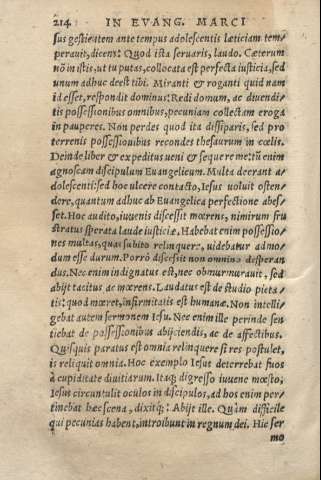 214. IN EVANG. MARCI
sus gestientem ante tempus adolescentis lætitiam tem-
perauit, dicens: Quod ista seruaris, laudo. Cæterum
nō in istis, ut tu putas, collocata est perfecta iusticia, sed
unum adhuc deest tibi. Miranti & roganti quid nam
id esset, respondit dominus: Redi domum, ac diuendi-
tis possessionibus omnibus, pecuniam collectam eroga
in pauperes. Non perdes quod ita dissiparis, sed pro
terrenis possessionibus recondes thesaurum in cœlis.
Deinde liber & expeditus ueni & sequere me: tū enim
agnoscam discipulum Euangelicum. Multa decerant a-
dolescenti: sed hoc ulcere contacto, Iesus uoluit osten-
dere, quantum adhuc ab Euangelica perfectione abes-
set. Hoc audito, iuuenis discessit mœrens, nimirum fru
stratus sperata laude iusticiæ. Habebat enim possessio-
nes multas, quas subito relinquere, uidebatur admo-
dum esse durum. Porrò discessit non omnino desperan
dus. Nec enim indignatus est, nec obmurmurauit, sed
abijt tacitus ac mœrens. Laudatus est de studio pieta-
tis: quod mœret, infirmitatis est humanæ. Non intelli-
gebat autem sermonem Iesu. Nec enim ille perinde sen
tiebat de possessionibus abijciendis, ac de affectibus.
Quisquis paratus est omnia relinquere si res postulet,
is reliquit omnia. Hoc exemplo Iesus deterrebat suos
à cupiditate diuitiarum. Itaq; digresso iuuene mœsto;
Iesus circuntulit oculos in discipulos, ad hos enim per-
tinebat hæc scena, dixitq́;: Abijt ille. Quàm difficile
qui pecunias habent, introibunt in regnum dei. Hic ser
mo